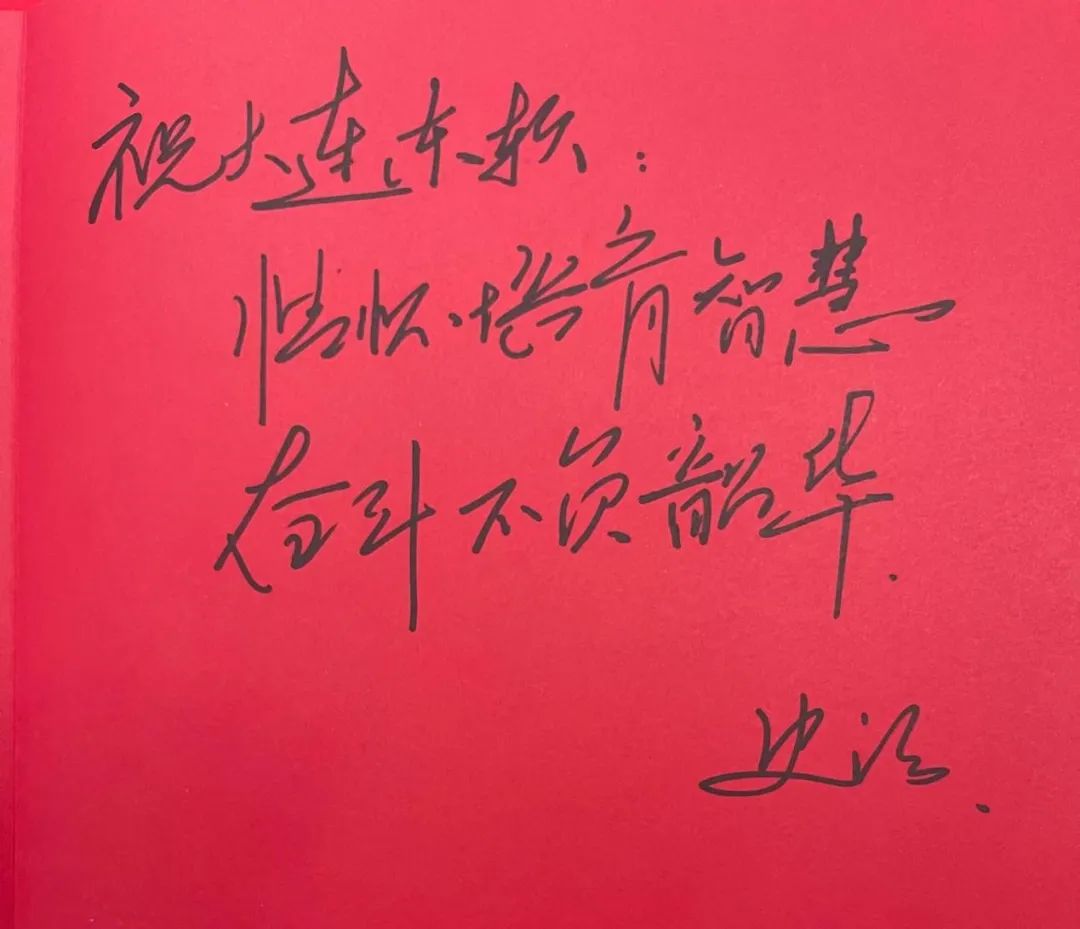 祝大连东软：
情怀培育智慧
奋斗不负韶华.
史